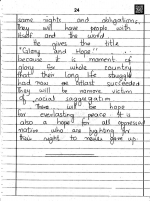 24
some rights and obligations,
they will have people with
itself and the world.
He gives the title
"Glory and Hope"
because it is moment of
glory for whole country
that their long life struggle
had now on atlast succeeded
they will be nomore victim
of racial seggregation.
There will be hope
for everlasting peace. It is
also a hope for all oppressed
nation who are fighting for
their right to never give up.